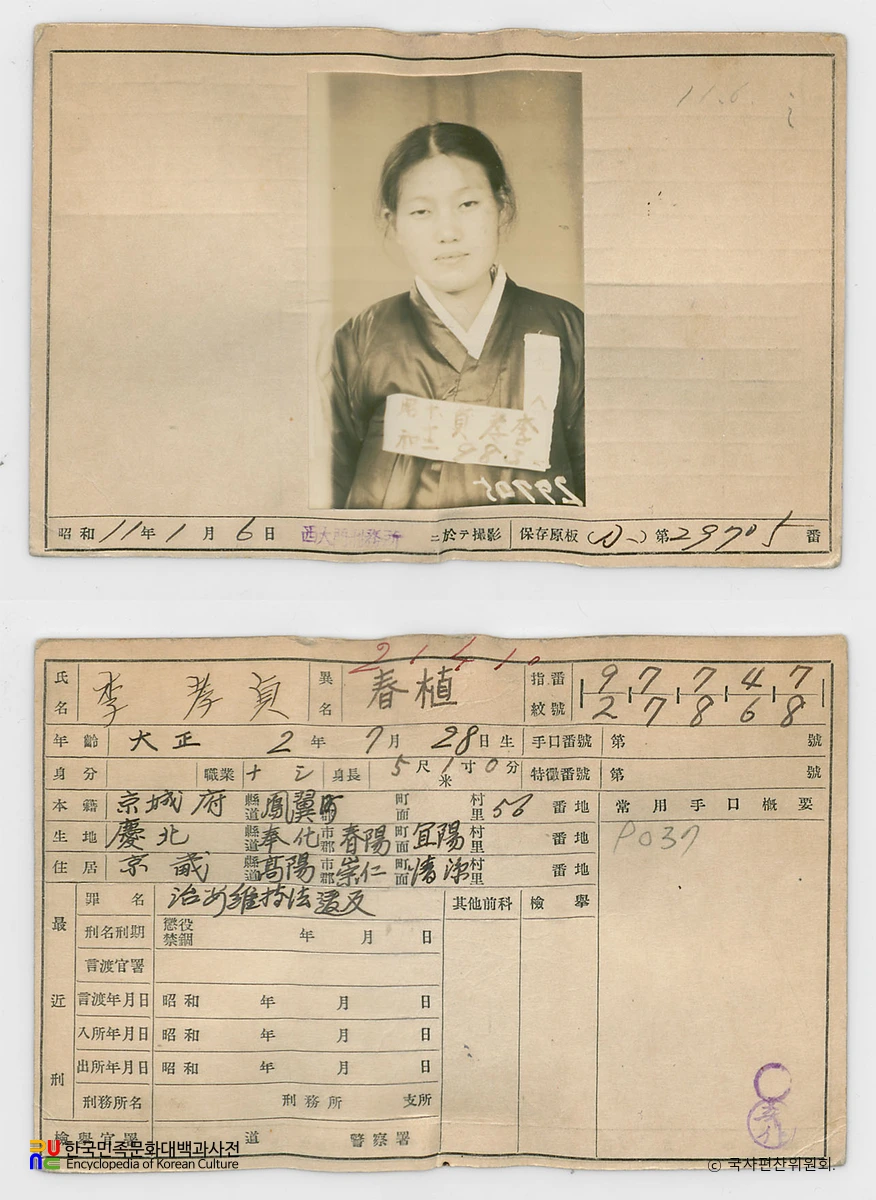 11.6.
李孝貞
29705
昭和 11年 1月 6日 西大門刑務所 ニ於テ撮影 保存原板 第29705番
21410
氏名 李孝貞 異名 春植 指紋番號 9 7 7 4 7
2 7 8 6 8
年齡 大正 2年 7月 28日生 手口番號 第 號
身分 職業 ナシ 身長 5尺1寸0分 米 特徵番號 第 號
本籍 京城府 縣道 鳳翼町 町面 村里 56 番地 常用手口概要
生地 慶北 縣道 奉化 市郡 春陽 町面 宜陽 村里 番地 P037
住居 京畿 縣道 高陽 市郡 崇仁 町面 村里 番地
最近刑 罪名 治安維持法違反 其他前科 檢擧
刑名刑期 懲役 禁錮 年 月 日
言渡官署
言渡年月日 昭和 年 月 日
入所年月日 昭和 年 月 日
出所年月日 昭和 年 月 日
刑務所名 刑務所 支所
檢擧官署 道 警察署
한국민족문화대백과사전
Encyclopedia of Korean Culture
© 국사편찬위원회.